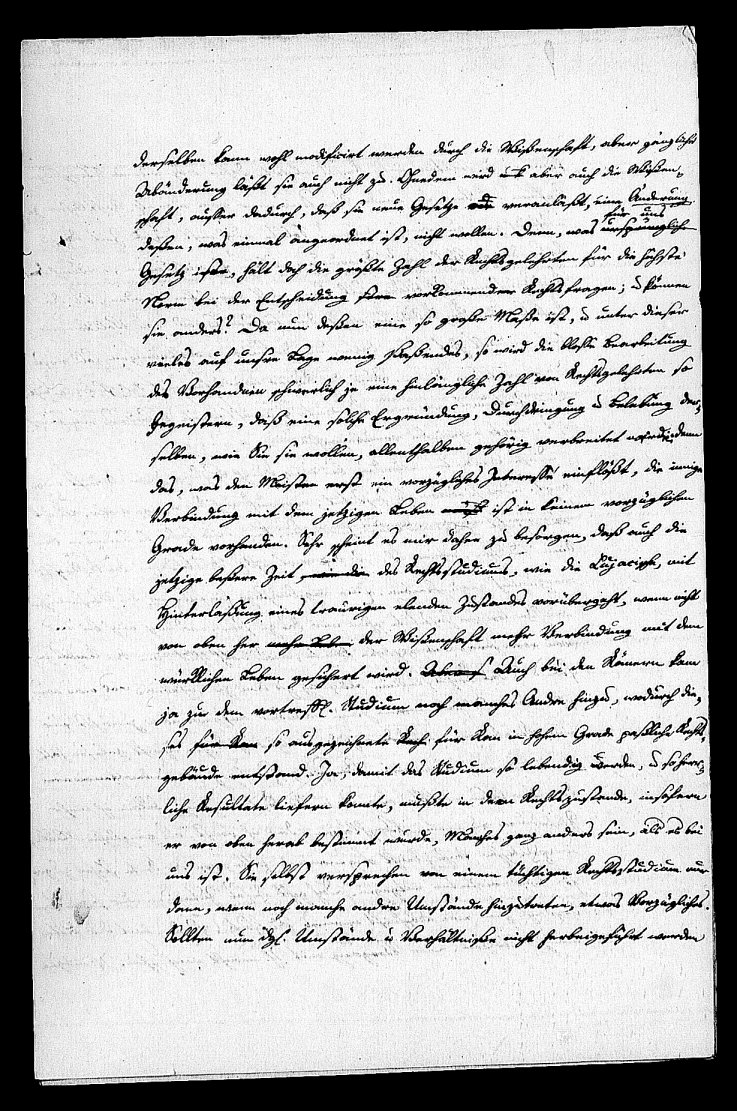 derselben kann wohl modificirt werden durch die Wißenschaft, aber gänzliche
Abänderung läßt sie auch nicht zu. Außerdem wird aber auch die Wißen-
schaft, außer dadurch, daß sie neue Gesetze veranlaßt, eine Änderung
deßen, was einmal angeordnet ist, nicht wollen. Denn, was für uns ursprünglich
Gesetz ist, hält doch die größte Zahl der Rechtsgelehrten für die höchste
Norm bei der Entscheidung vorkommender Rechtsfragen; u können
sie anders? Da nun deßen eine so große Maße ist, u unter dieser
vieles auf unsre Lage wenig paßendes, so wird die bloße Bearbeitung
des Vorhandnen schwerlich je eine hinlängliche Zahl von Rechtsgelehrten so
begeistern, daß eine solche Ergründung, Durchdringung u Belebung der-
selben, wie Sie sie wollen, allenthalben gehörig verbreitet würde; denn
das, was den Meisten erst ein vorzügliches Interesse einflößt, die innige
Verbindung mit dem jetzigen Leben ist in keinem vorzüglichen
Grade vorhanden. Sehr scheint es mir daher zu besorgen, daß auch die
jetzige beßere Zeit des Rechtsstudiums, wie die Cujacische, mit
Hinterlaßung eines traurigen elenden Zustandes vorübergeht, wenn nicht
von oben her der Wißenschaft mehr Verbindung mit dem
würklichen Leben gesichert wird. Auch bei den Römern kam
ja zu dem vortreffl. Studium noch manches Andre hinzu, wodurch die-
ses so ausgezeichnete für Rom in hohem Grade paßliche Rechts-
gebäude entstand. Ja, damit das Studium so lebendig werden, u so herr-
liche Resultate liefern konnte, mußte in dem Rechtszustande, insofern
er von oben herab bestimmt wurde, Manches ganz anders sein, als es bei
uns ist. Sie selbst versprechen von einem tüchtigen Rechtsstudium nur
dann, wenn noch manche andre Umstände hinzutreten, etwas Vorzügliches.
Sollten nun dgl. Umstände u Verhältniße nicht herbeigeführt werden